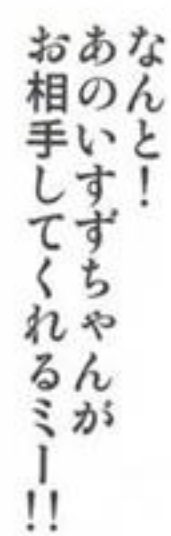 なんと！
あのいすずちゃんが
お相手してくれるミー!!